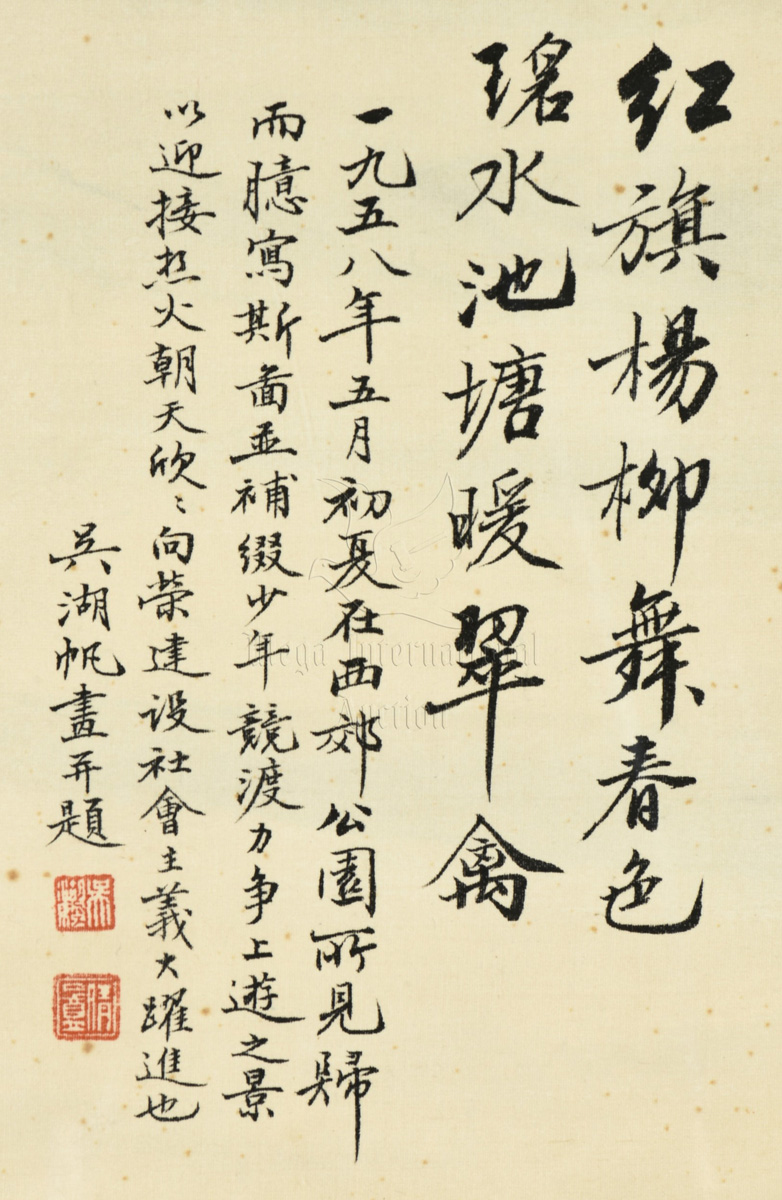 红旗楊柳舞春色
碧水池塘暖翠禽
一九五八年五月初夏在西郊公園所見歸
而臆寫斯啚並補綴少年競渡力争上遊之景
以迎接烈火朝天欣〻向榮建设社會主義大躍進也
吴湖帆畫并題
Mega International
Auction